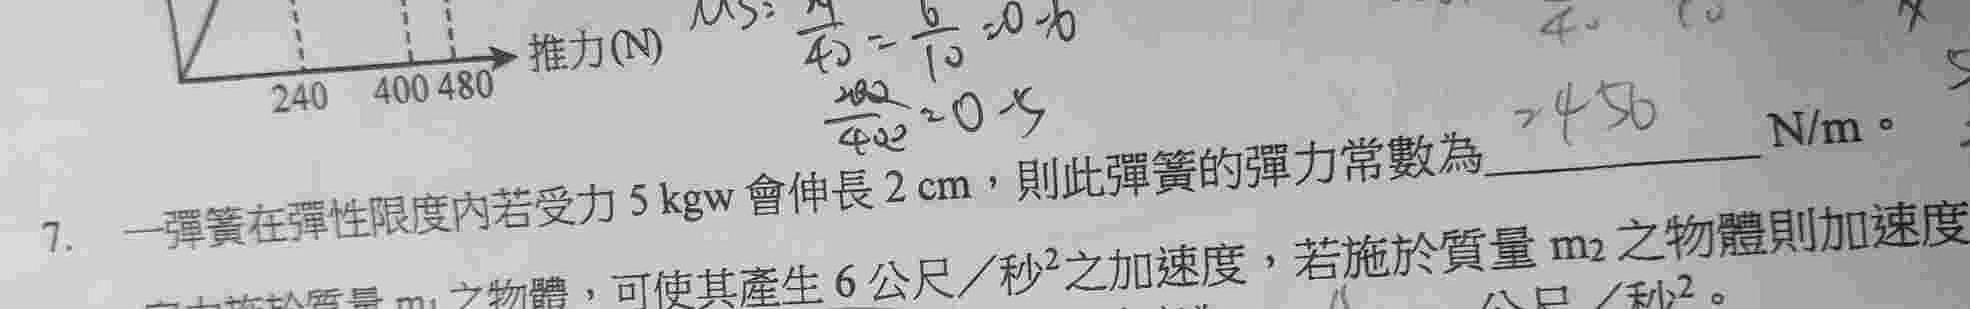 240 400 480 推力(N)
40 = 6/10 = 0.6
400 = 0.5
=450
7. 一彈簧在彈性限度內若受力 5 kgw 會伸長 2 cm，則此彈簧的彈力常數為 N/m。
m₁ 之物體，可使其產生 6 公尺／秒²之加速度，若施於質量 m₂ 之物體則加速度
公尺／秒²。